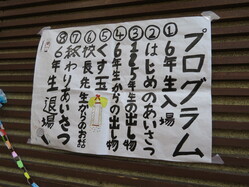 プログラム
①6年生入場
②はじめのあいさつ
③1〜5年生の出し物
④6年生からの出し物
⑤くす玉
⑥校長先生からのお話
⑦終わりあいさつ
⑧6年生退場